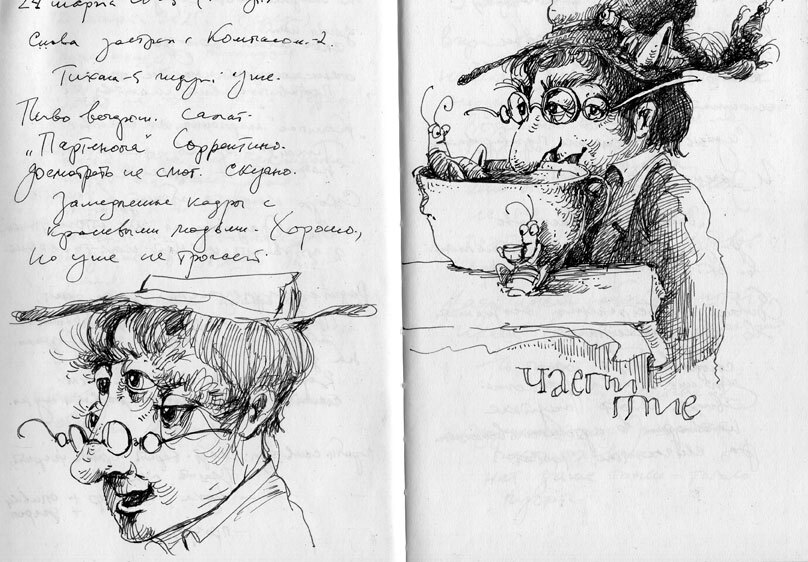 24 марта
Снова застрял с Компасом-2.
Тихая-5 идут. Уже.
Пиво вечером. Салат.
„Партенопа" Соррентино.
Досмотреть не смог. Скучно.
Замедленные кадры с
красивыми людьми. Хорошо,
но уже не трогает.
чаепи
тие